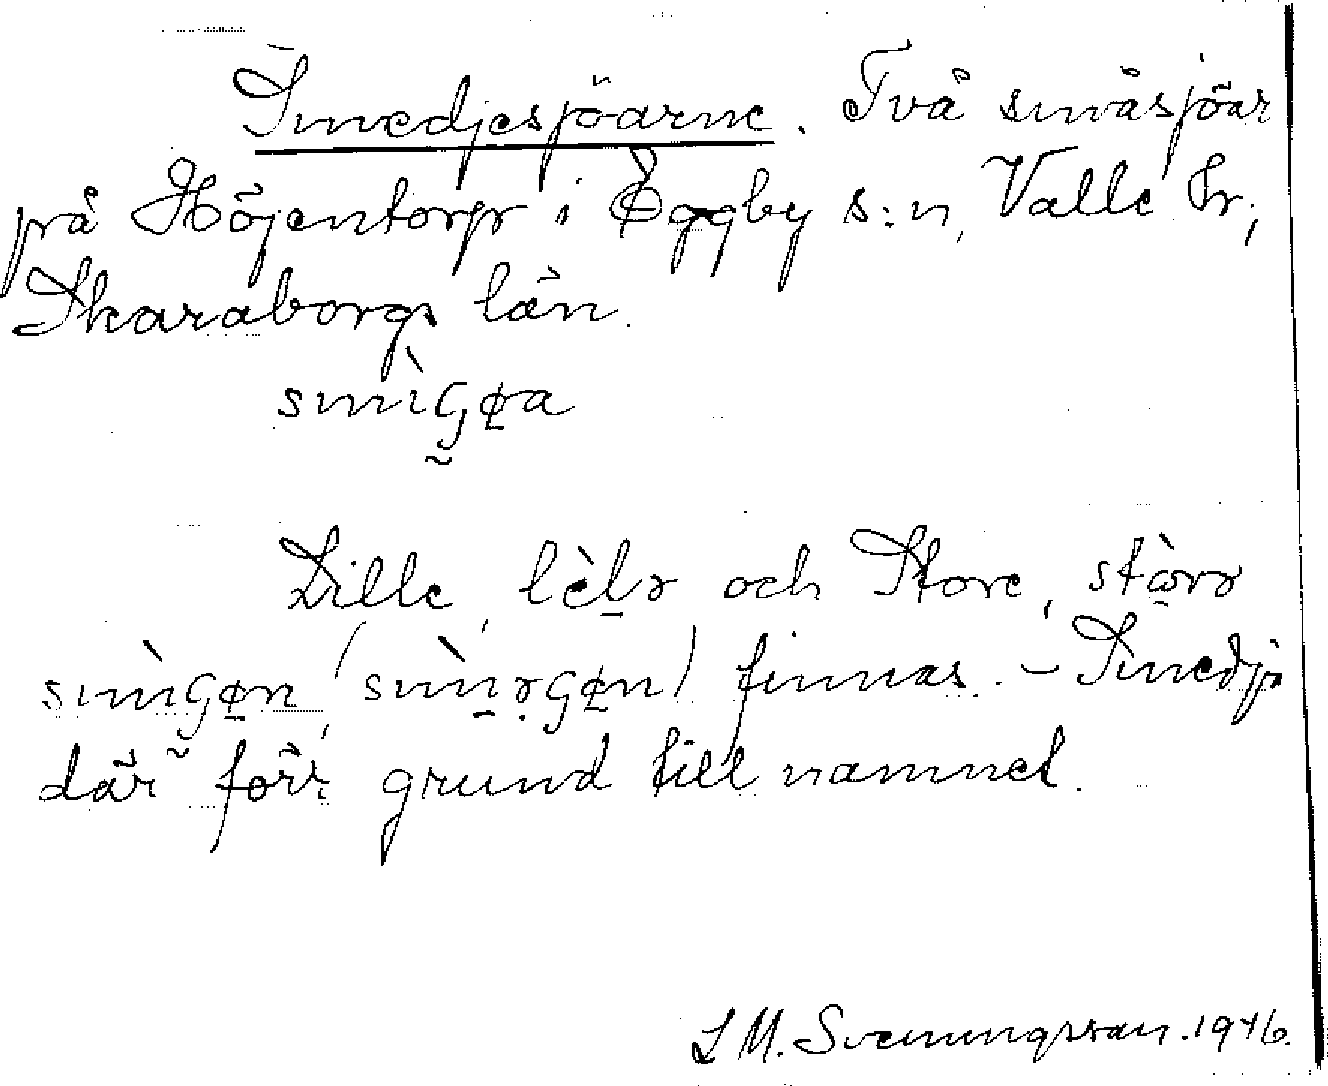 Smedjesjöarne. Två småsjöar
på Höjentorp i Eggby s:n, Valle hr,
Skaraborgs län.
Lille, och Store,
finnas. – Smedja
där förr grund till namnet.
S M. Svenungsson. 1946.